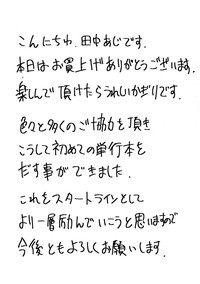 こんにちわ、田中あじです。
本日はお買上げありがとうございます。
楽しんで頂けたらうれしいかぎりです。
色々と多くのご協力を頂き
こうして初めての単行本を
だす事ができました。
これをスタートラインとして
より一層励んでいこうと思いますので
今後ともよろしくお願いします。